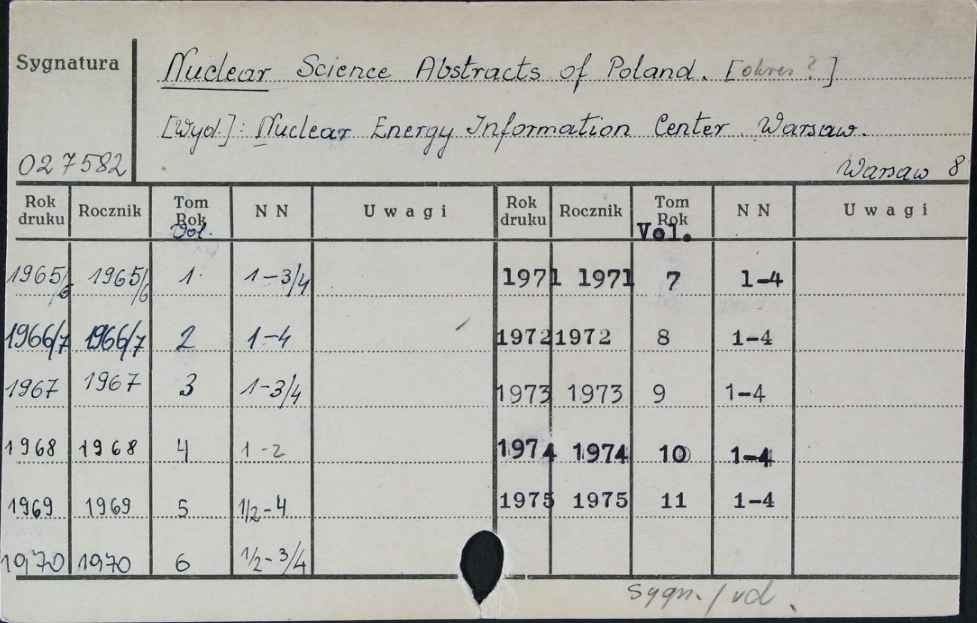 Sygnatura
Nuclear Science Abstracts of Poland. [okres ?]
[Wyd.]: Nuclear Energy Information Center Warsaw.
027582 Warsaw 8
Rok druku Rocznik Tom Rok Vol. NN Uwagi Rok druku Rocznik Tom Rok Vol. NN Uwagi
1965/6 1965/6 1 1-3/4 1971 1971 7 1-4
1966/7 1966/7 2 1-4 1972 1972 8 1-4
1967 1967 3 1-3/4 1973 1973 9 1-4
1968 1968 4 1-2 1974 1974 10 1-4
1969 1969 5 1/2-4 1975 1975 11 1-4
1970 1970 6 1/2-3/4
sygn. / vd.